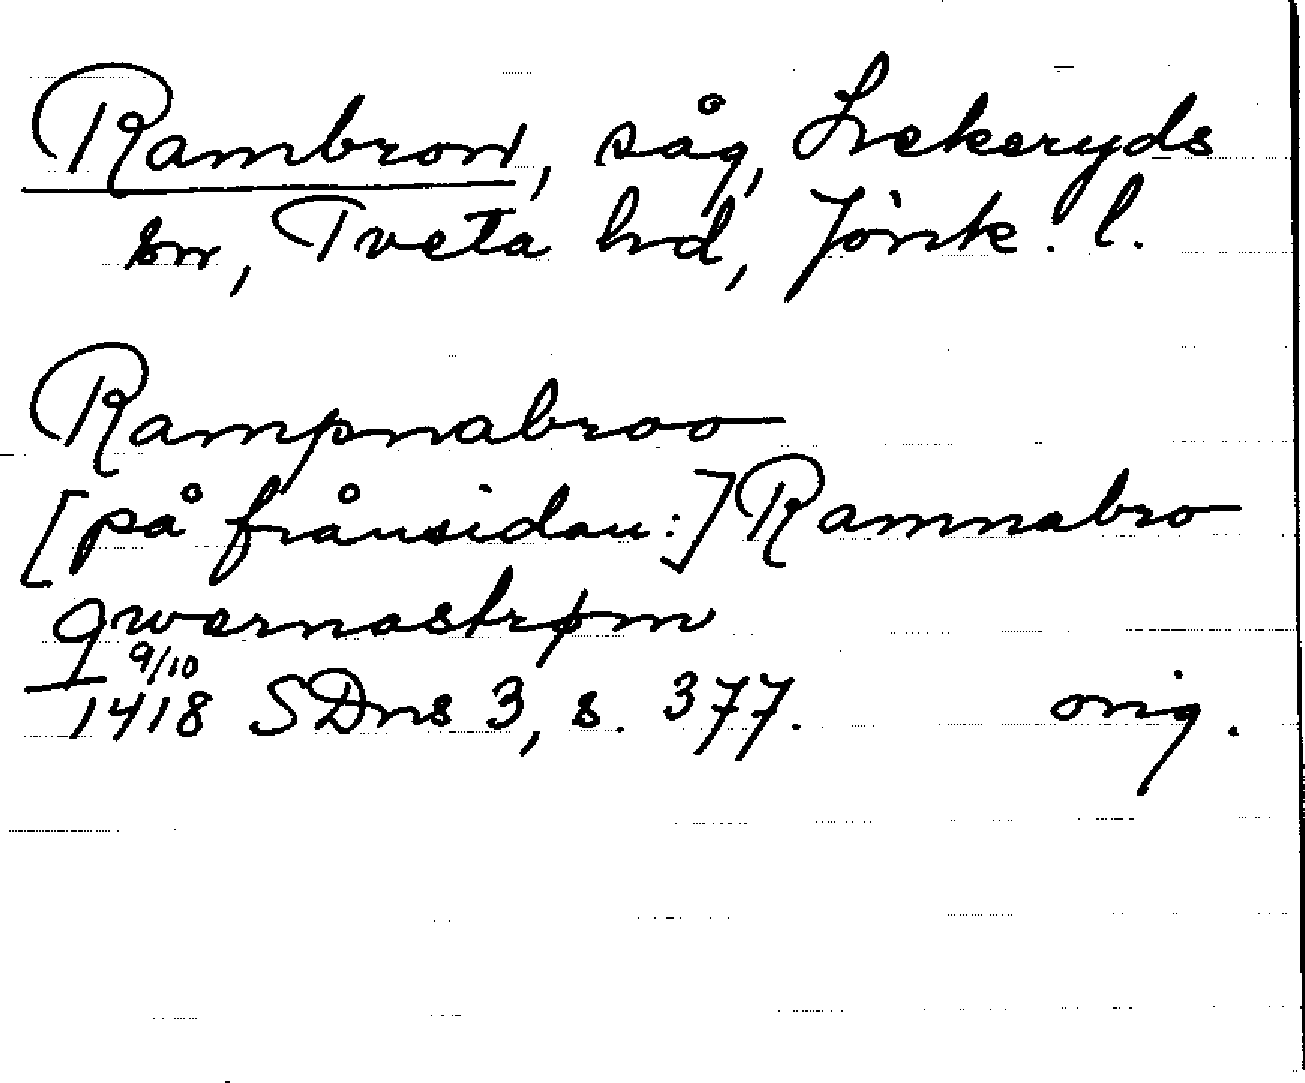 Rambron, såg, Lekeryds
sn, Tveta hd, Jönk. l.
Rampnabroo
[på frånsidan:] Ramnabro
qwarnastrøm
9/10
1418 SDns 3, s. 377. orig.